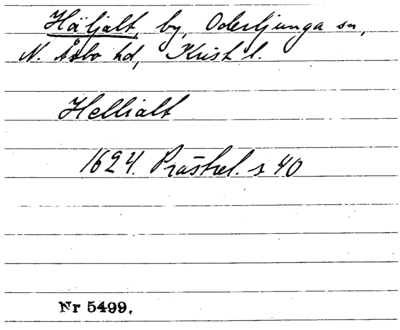 Häljalt, by, Oderljunga sn,
N. Åsbo hd, Krist l.
Hellialt
1624. Prästrel. s 40
Nr 5499.